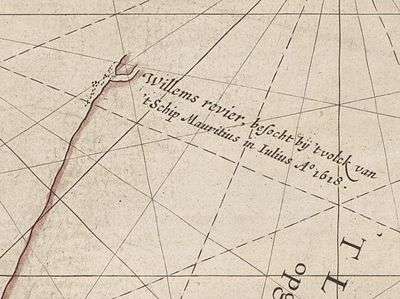 Willems revier, besocht bij 't volck van
't Schip Mauritius in Iulius A° 1618.
'T L
opg